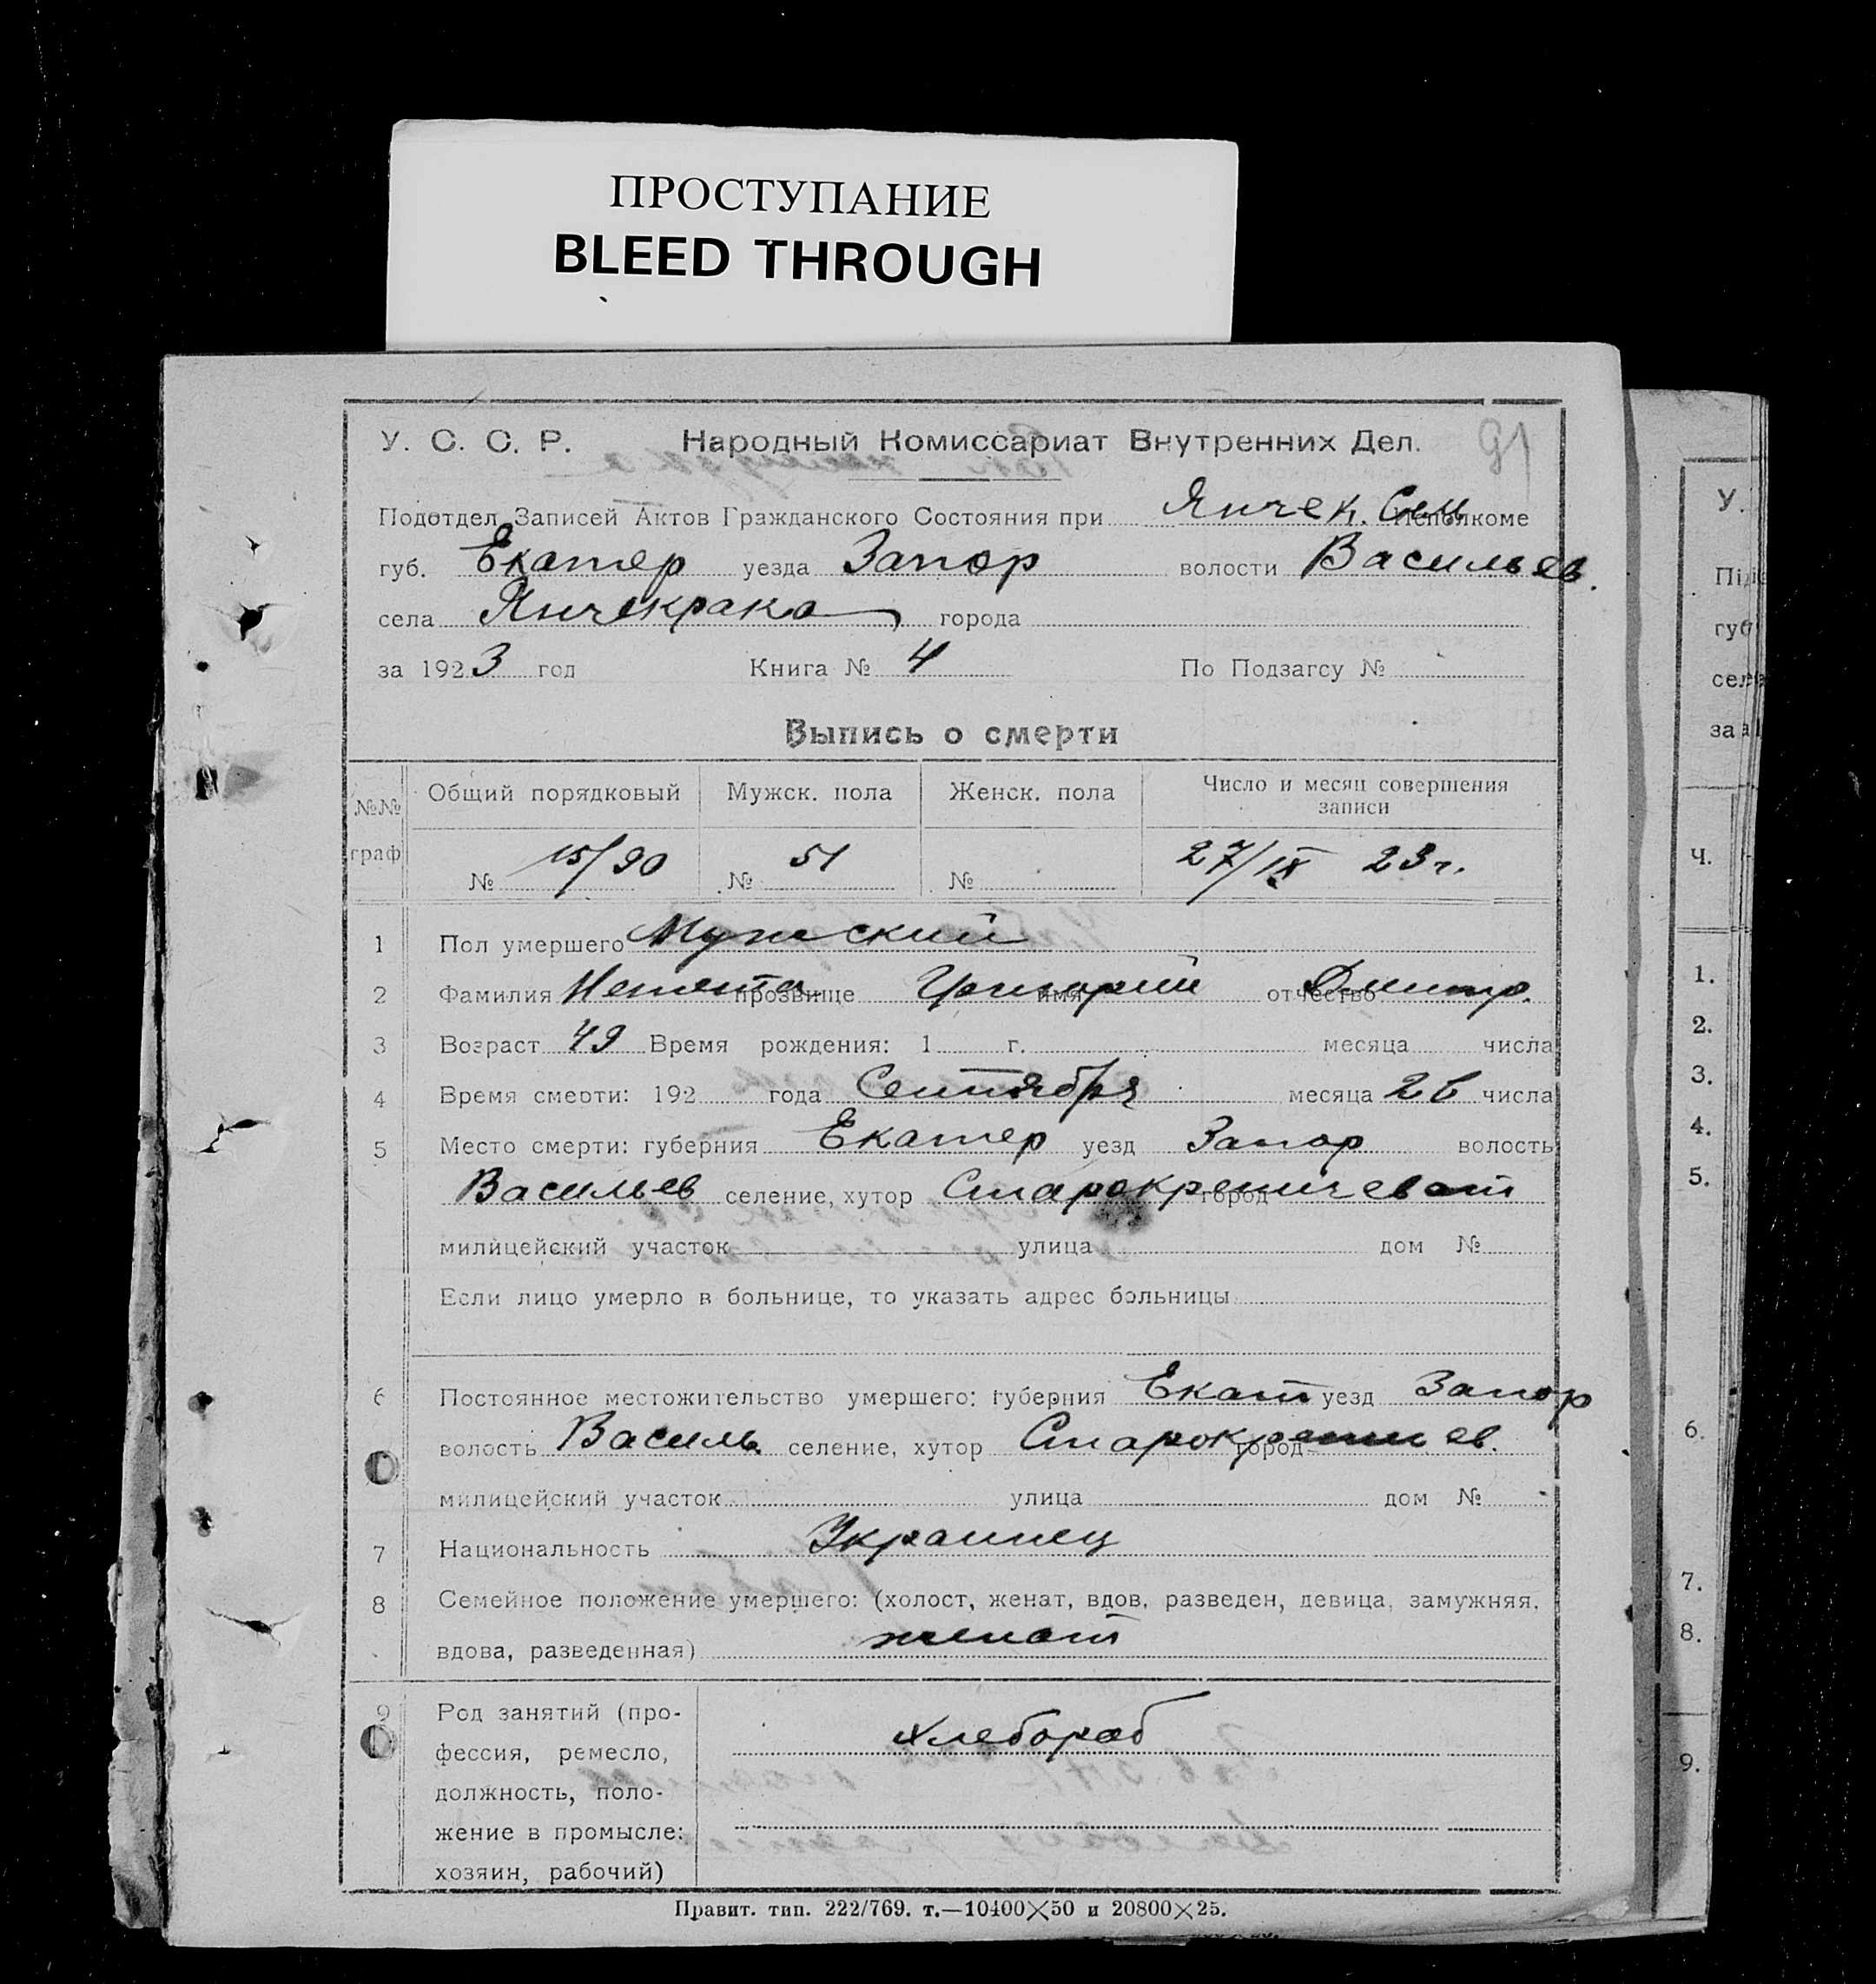 ПРОСТУПАНИЕ
BLEED THROUGH
У. С. С. Р. Народный Комиссариат Внутренних Дел. 91
Подотдел Записей Актов Гражданского Состояния при Янчек. Сель Исполкоме
губ. Екатер уезда Запор волости Васильев.
села Янчекрака города
за 1923 год Книга № 4 По Подзагсу №
Выпись о смерти
№№ граф Общий порядковый Мужск. пола Женск. пола Число и месяц совершения записи
№ 15/90 № 51 № 27/IX 23 г.
1 Пол умершего Мужской
2 Фамилия прозвище Григорий имя отчество Дмитр.
3 Возраст 49 Время рождения: 1 г. месяца числа
4 Время смерти: 192 года Сентября месяца 26 числа
5 Место смерти: губерния Екатер уезд Запор волость
Васильев селение, хутор город
милицейский участок улица дом №
Если лицо умерло в больнице, то указать адрес больницы
6 Постоянное местожительство умершего: губерния Екат уезд Запор
волость Василь селение, хутор город
милицейский участок улица дом №
7 Национальность Украинец
8 Семейное положение умершего: (холост, женат, вдов, разведен, девица, замужняя,
вдова, разведенная) женат
9 Род занятий (про-
фессия, ремесло,
должность, поло-
жение в промысле:
хозяин, рабочий)
Хлебороб
Правит. тип. 222/769. т.—10400×50 и 20800×25.
У.
Пі
губ
сел
за
Ч.
1.
2.
3.
4.
5.
6.
7.
8.
9.